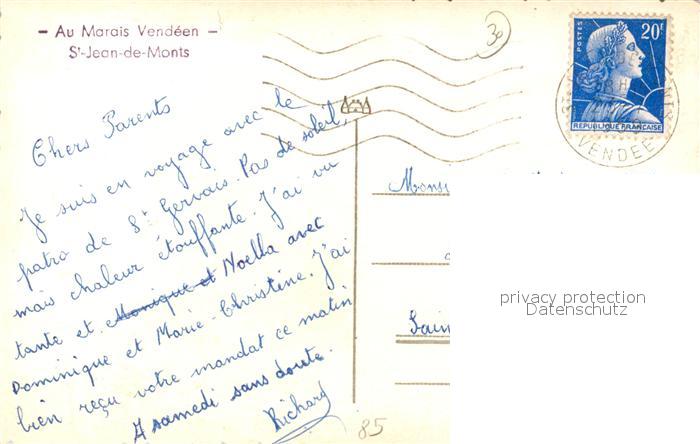 - Au Marais Vendéen -
St-Jean-de-Monts
30
POSTES
20F
REPUBLIQUE FRANÇAISE
VENDEE
Chers Parents
Je suis en voyage avec le
patro de St Gervais. Pas de soleil,
mais chaleur étouffante. J'ai vu
tante et Monique et Noella avec
Dominique et Marie-Christine. J'ai
bien reçu votre mandat ce matin
A samedi sans doute.
Richard
85
Monsi
Sain
privacy protection
Datenschutz